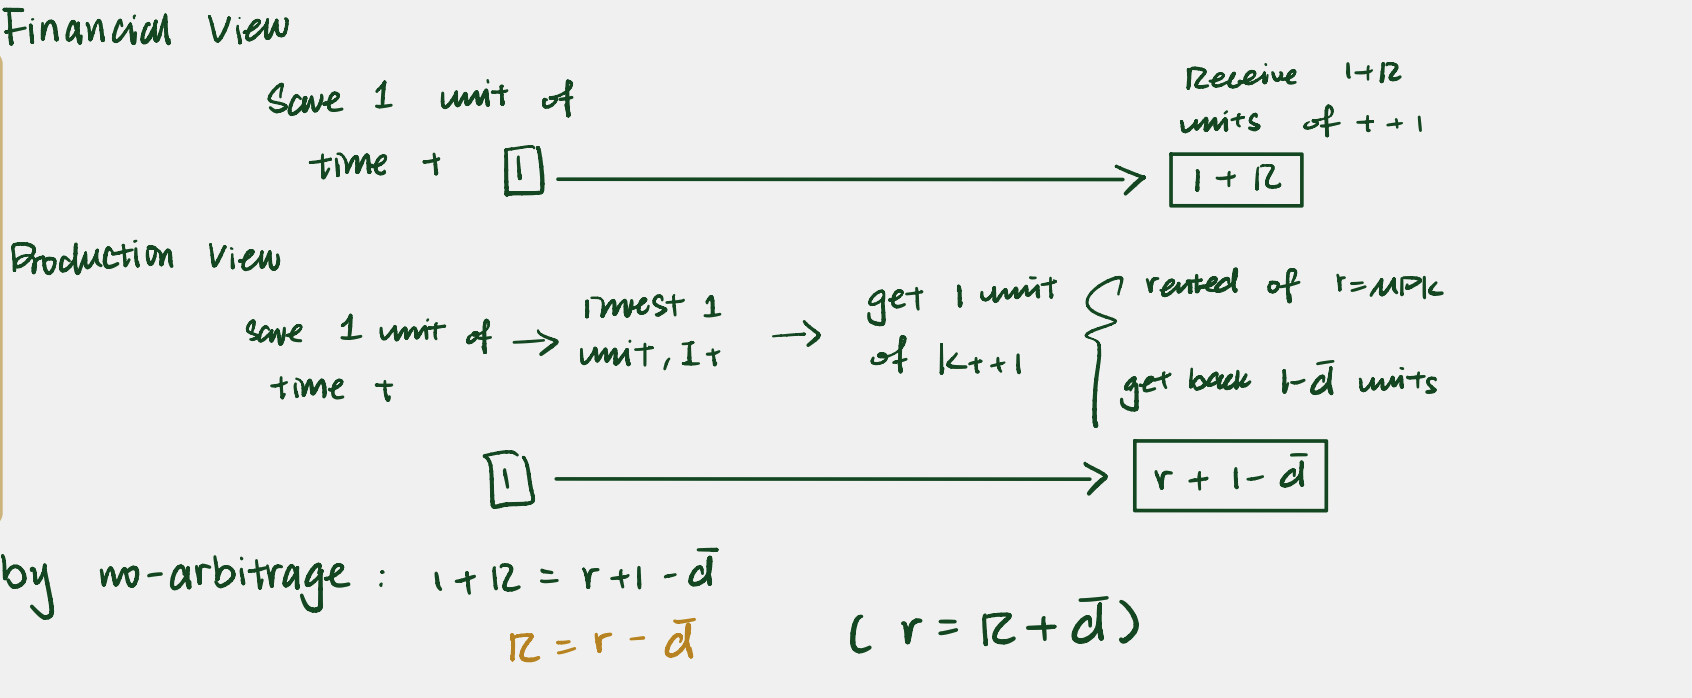 Financial View
Save 1 unit of
time t
1
Receive 1+R
units of t+1
1 + R
Production View
save 1 unit of
time t
invest 1
unit, It
get 1 unit
of Kt+1
rented of r=MPK
get back 1-d̄ units
1
r + 1 - d̄
by no-arbitrage : 1+R = r+1-d̄
R = r - d̄
( r = R + d̄ )